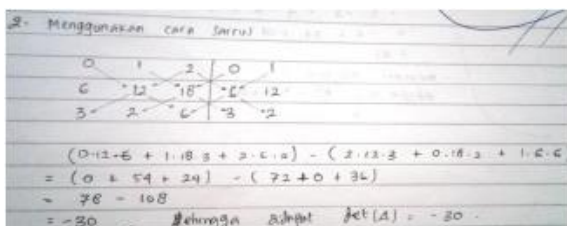 2. Menggunakan cara Sarrus
0 1 2 | 0 1
6 12 18 | 6 12
3 2 6 | 3 2
(0·12·6 + 1·18·3 + 2·6·2) - (2·12·3 + 0·18·2 + 1·6·6
= (0 + 54 + 24) - (72 + 0 + 36)
= 78 - 108
= -30 Sehingga didapat det(A) = -30.